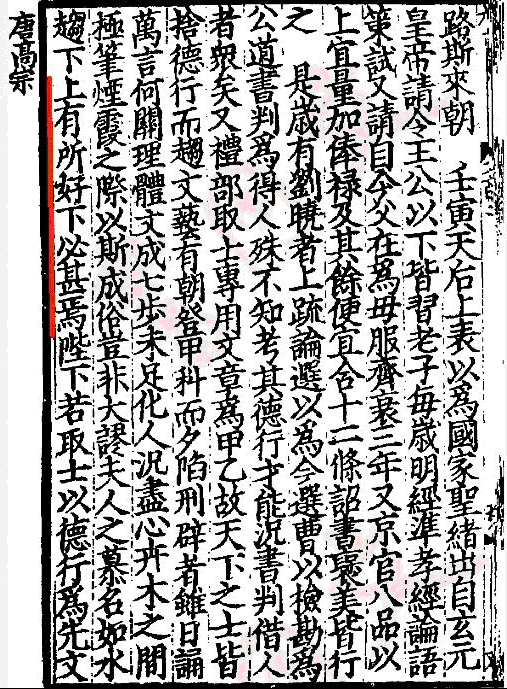 路斯來朝　壬寅天后上表以爲國家聖緒出自玄元
皇帝請令王公以下皆習老子每歲明經準孝經論語
策試又請自今父在爲母服齊衰三年又京官八品以
上宜量加俸禄及其餘便宜合十二條詔書襃美皆行
之　是歲有劉曉者上疏論選以爲今選曹以撿勘爲
公道書判爲得人殊不知考其德行才能況書判借人
者衆矣又禮部取士專用文章爲甲乙故天下之士皆
捨德行而趨文藝有朝登甲科而夕陷刑辟者雖日誦
萬言何關理體文成七步未足化人況盡心卉木之間
極筆煙霞之際以斯成俗豈非大謬夫人之慕名如水
趨下上有所好下必甚焉陛下若取士以德行爲先文
唐高宗